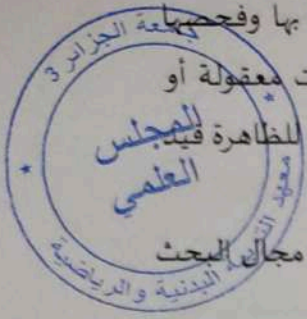 بها وفحصها
ت معقولة أو
للظاهرة قيد
مجال البحث
جامعة الجزائر 3
المجلس
العلمي
معهد التربية البدنية والرياضية